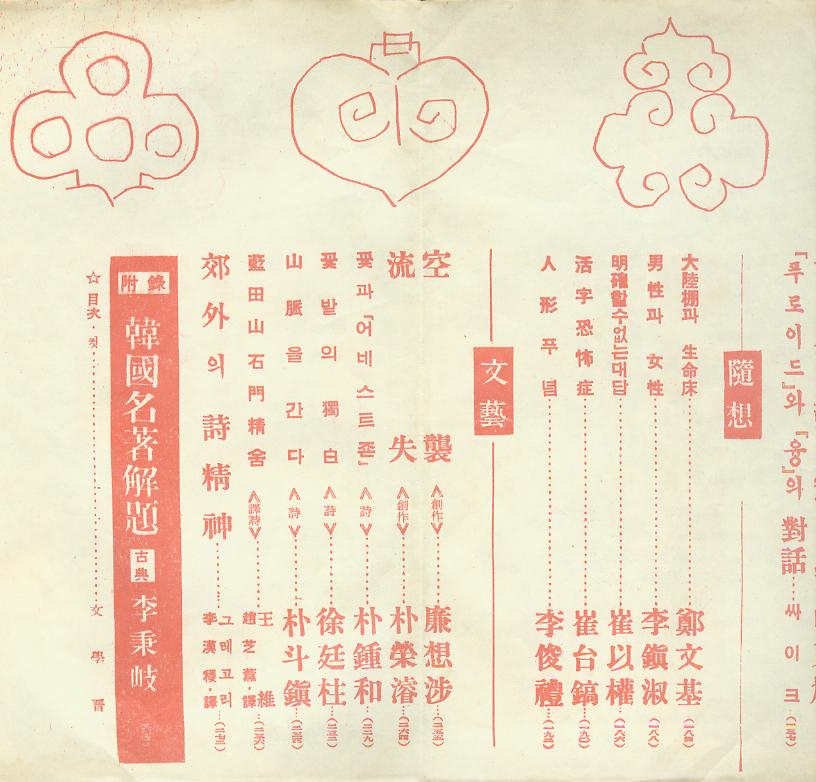 『푸로이드』와『융』의 對話……싸이크…(一五七)
隨想
大陸棚과 生命床……鄭文基…(一八四)
男性과 女性……李鎭淑…(一八八)
明確할수없는대답……崔以權…(一八六)
活字恐怖症……崔台鎬…(一九〇)
人形푸념……李俊禮…(一九三)
文藝
空襲≪創作≫……廉想涉…
流失≪創作≫……朴榮濬…(二六四)
꽃과「어베스트죤」≪詩≫……朴鍾和…(二二九)
꽃밭의 獨白≪詩≫……徐廷柱…(二三二)
山脈을 간다≪詩≫……朴斗鎭…(二三四)
藍田山石門精舍≪譯詩≫……王維 趙芝薰·譯…(二三六)
郊外의 詩精神……그레고리 李漢稷·譯…(二七二)
附錄
韓國名著解題 古典 李秉岐
☆目次·컷……文學晋